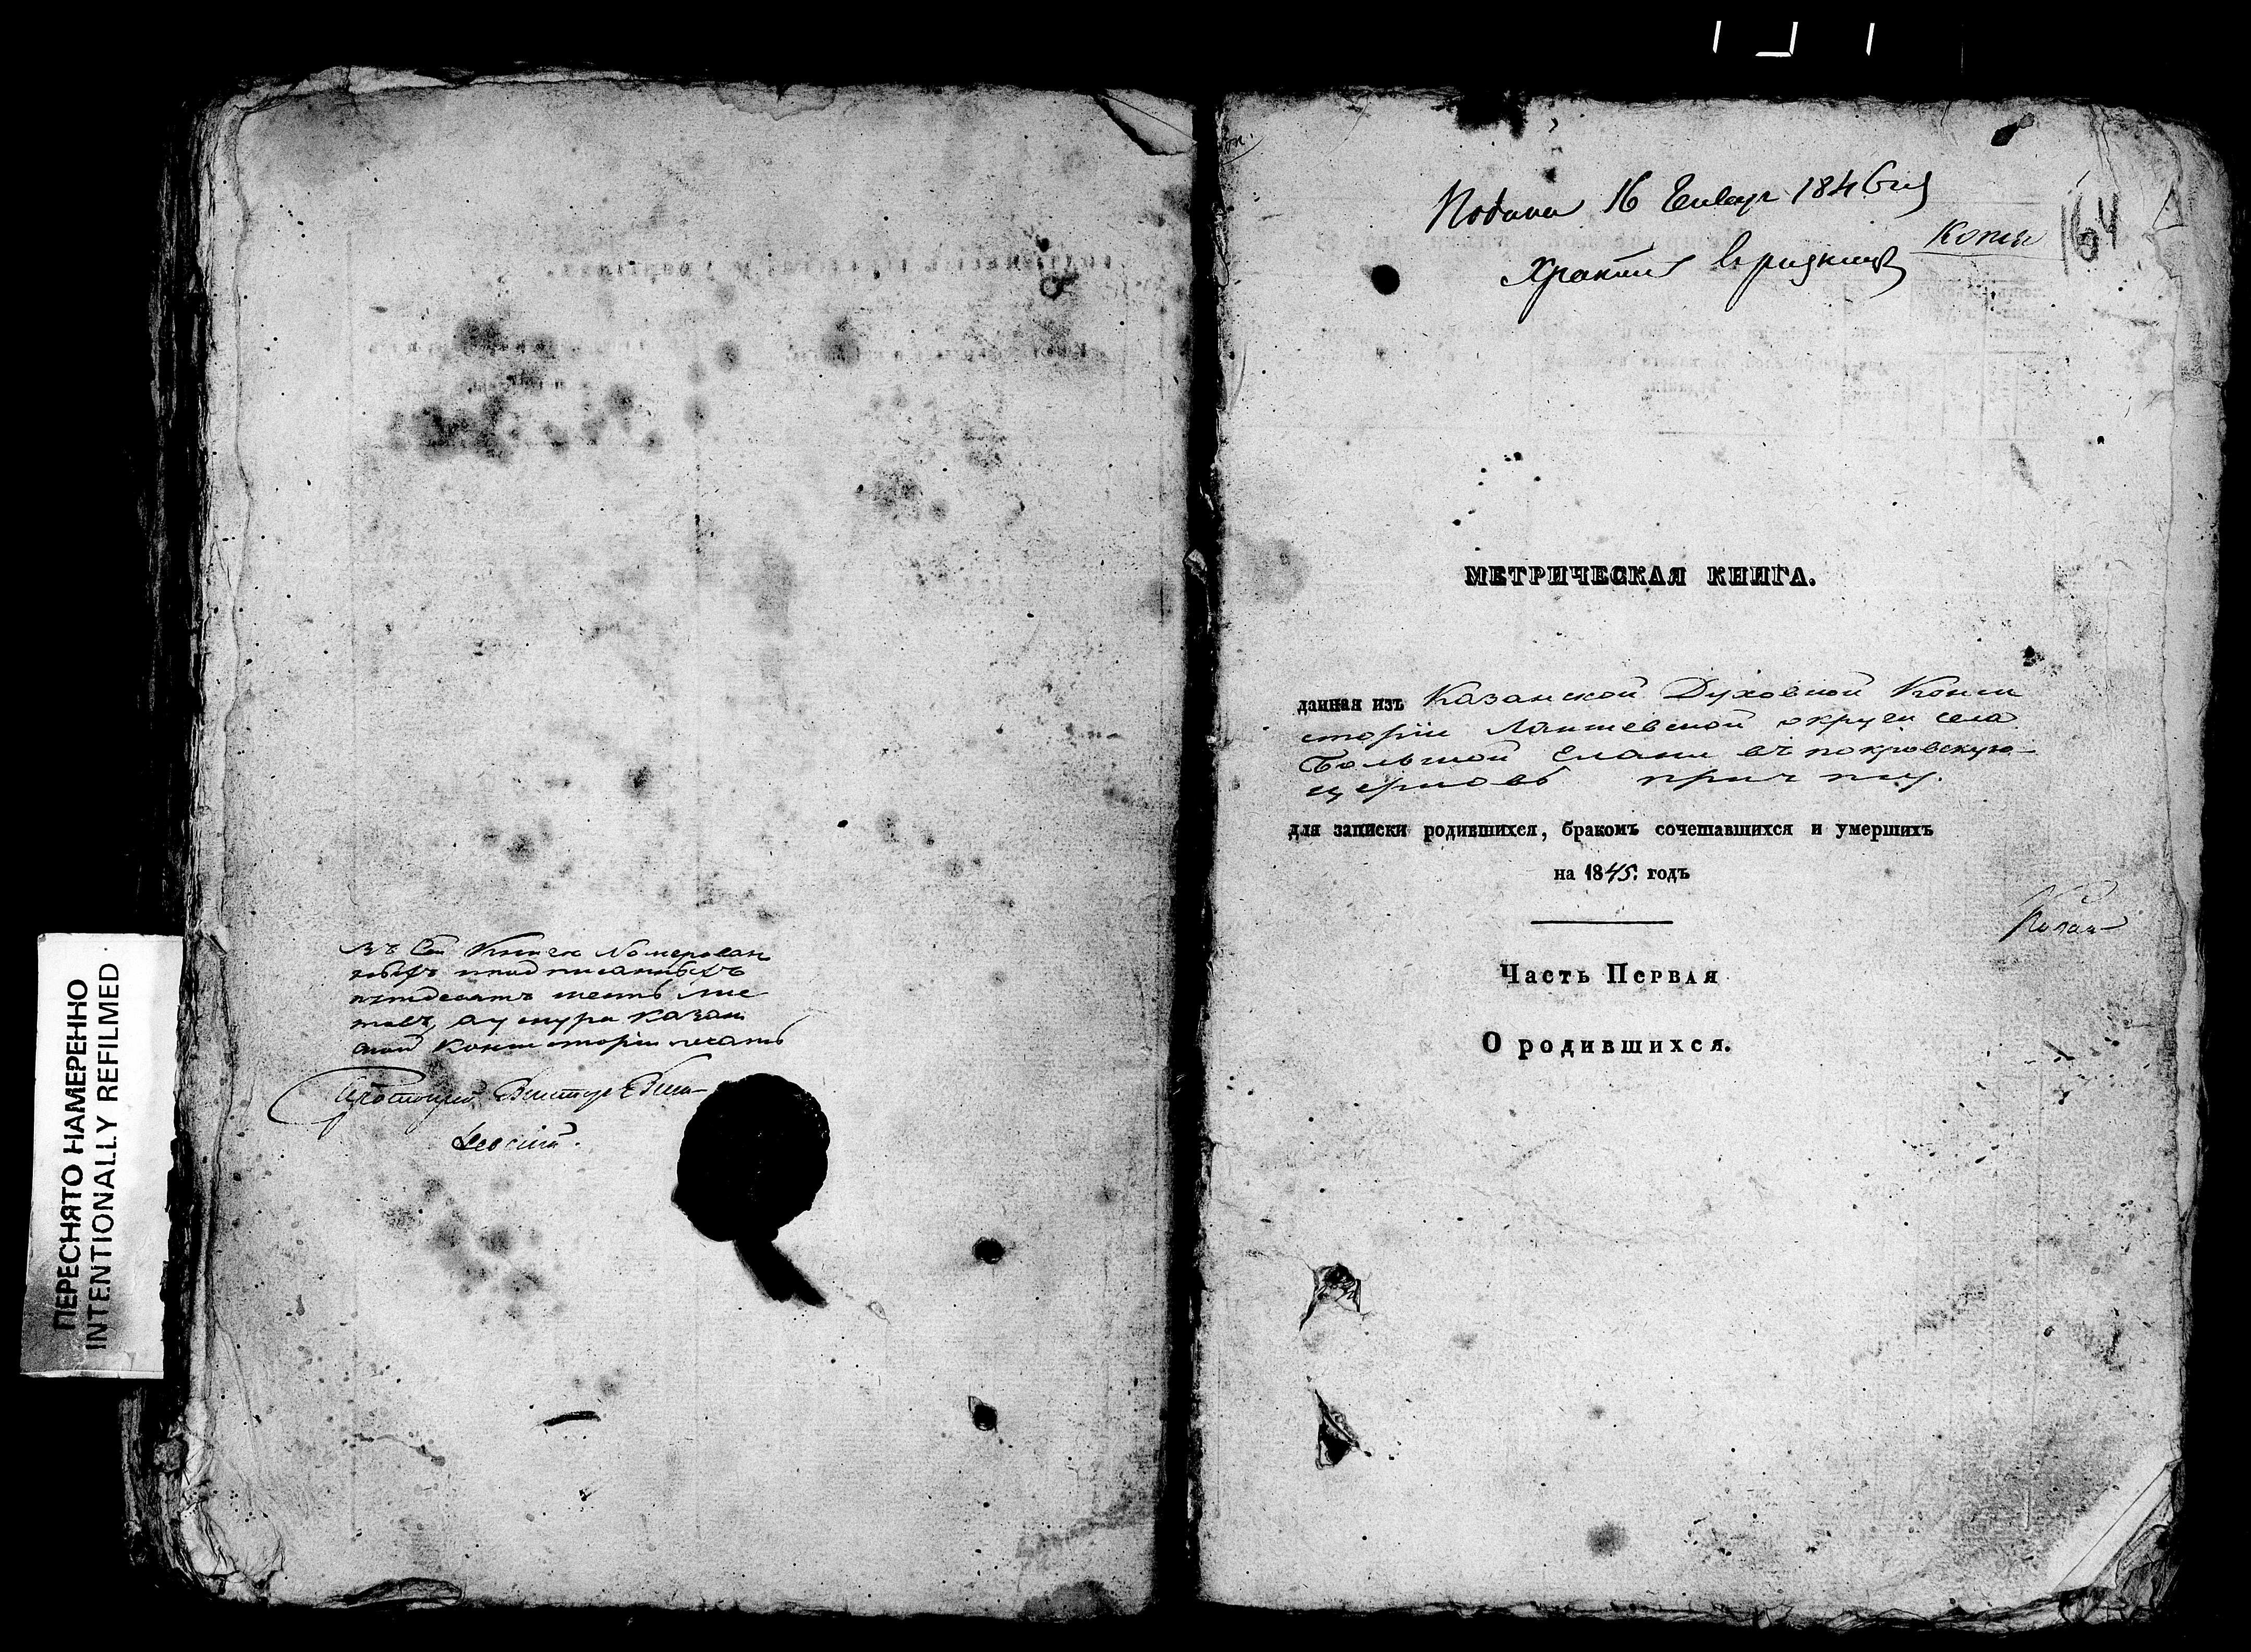 ПЕРЕСНЯТО НАМЕРЕННО
INTENTIONALLY REFILMED
Въ сей Книге Номерован
ныхъ и подписанныхъ
пятдесятъ шесть лис
товъ, а у шнура Казан
ской Консисторіи печать
Протоіерей Викторъ
164
Подана 16 Генвар 1846 год
Копія
Хранить
МЕТРИЧЕСКАЯ КНИГА.
данная изъ Казанской Духовной Конси
сторіи Лаишевской округи села
Большой Елани въ покровскую
церковь причту.
для записки родившихся, бракомъ сочетавшихся и умершихъ
на 1845. годъ
Часть Первая
О родившихся.